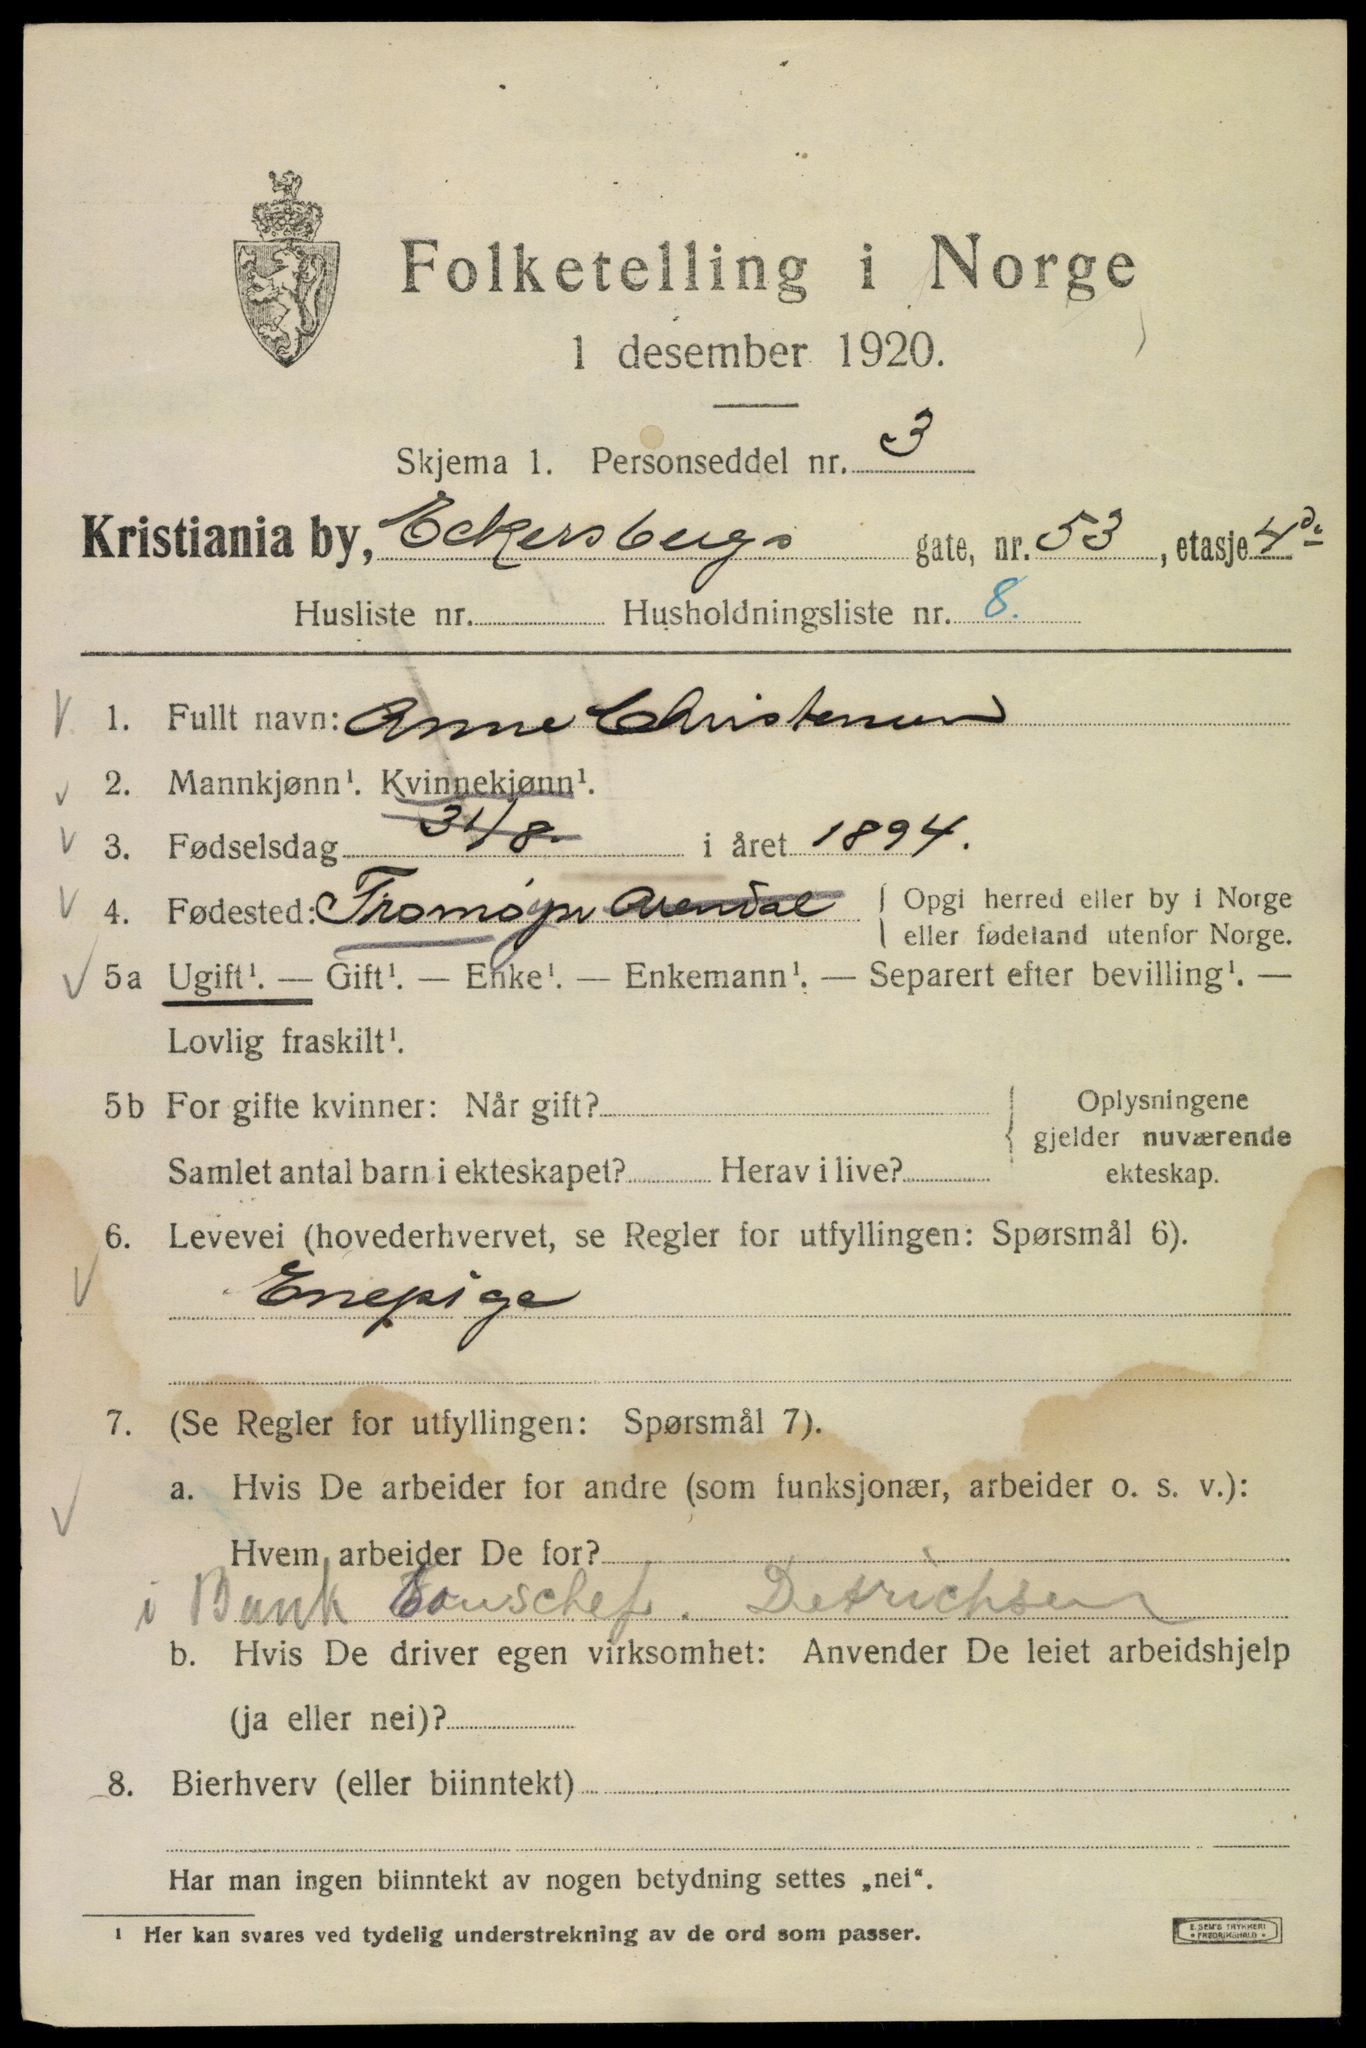 Folketelling i Norge
1 desember 1920.
Skjema 1. Personseddel nr. 3
Kristiania by, Eckersbergs gate, nr. 53, etasje 4de
Husliste nr. Husholdningsliste nr. 8.
1. Fullt navn: Anne Christensen
2. Mannkjønn¹. Kvinnekjønn¹.
3. Fødselsdag 31/8 i året 1894.
4. Fødested: Tromøy Arendal { Opgi herred eller by i Norge
eller fødeland utenfor Norge.
5a Ugift¹. — Gift¹. — Enke¹. — Enkemann¹. — Separert efter bevilling¹. —
Lovlig fraskilt¹.
5b For gifte kvinner: Når gift? { Oplysningene
gjelder nuværende
Samlet antal barn i ekteskapet? Herav i live? ekteskap.
6. Levevei (hovederhvervet, se Regler for utfyllingen: Spørsmål 6).
Enepige
7. (Se Regler for utfyllingen: Spørsmål 7).
a. Hvis De arbeider for andre (som funksjonær, arbeider o. s. v.):
Hvem arbeider De for?
i Bank Detrichsen
b. Hvis De driver egen virksomhet: Anvender De leiet arbeidshjelp
(ja eller nei)?
8. Bierhverv (eller biinntekt)
Har man ingen biinntekt av nogen betydning settes „nei“.
¹ Her kan svares ved tydelig understrekning av de ord som passer.
E. SEM'S TRYKKERI
• FREDRIKSHALD •